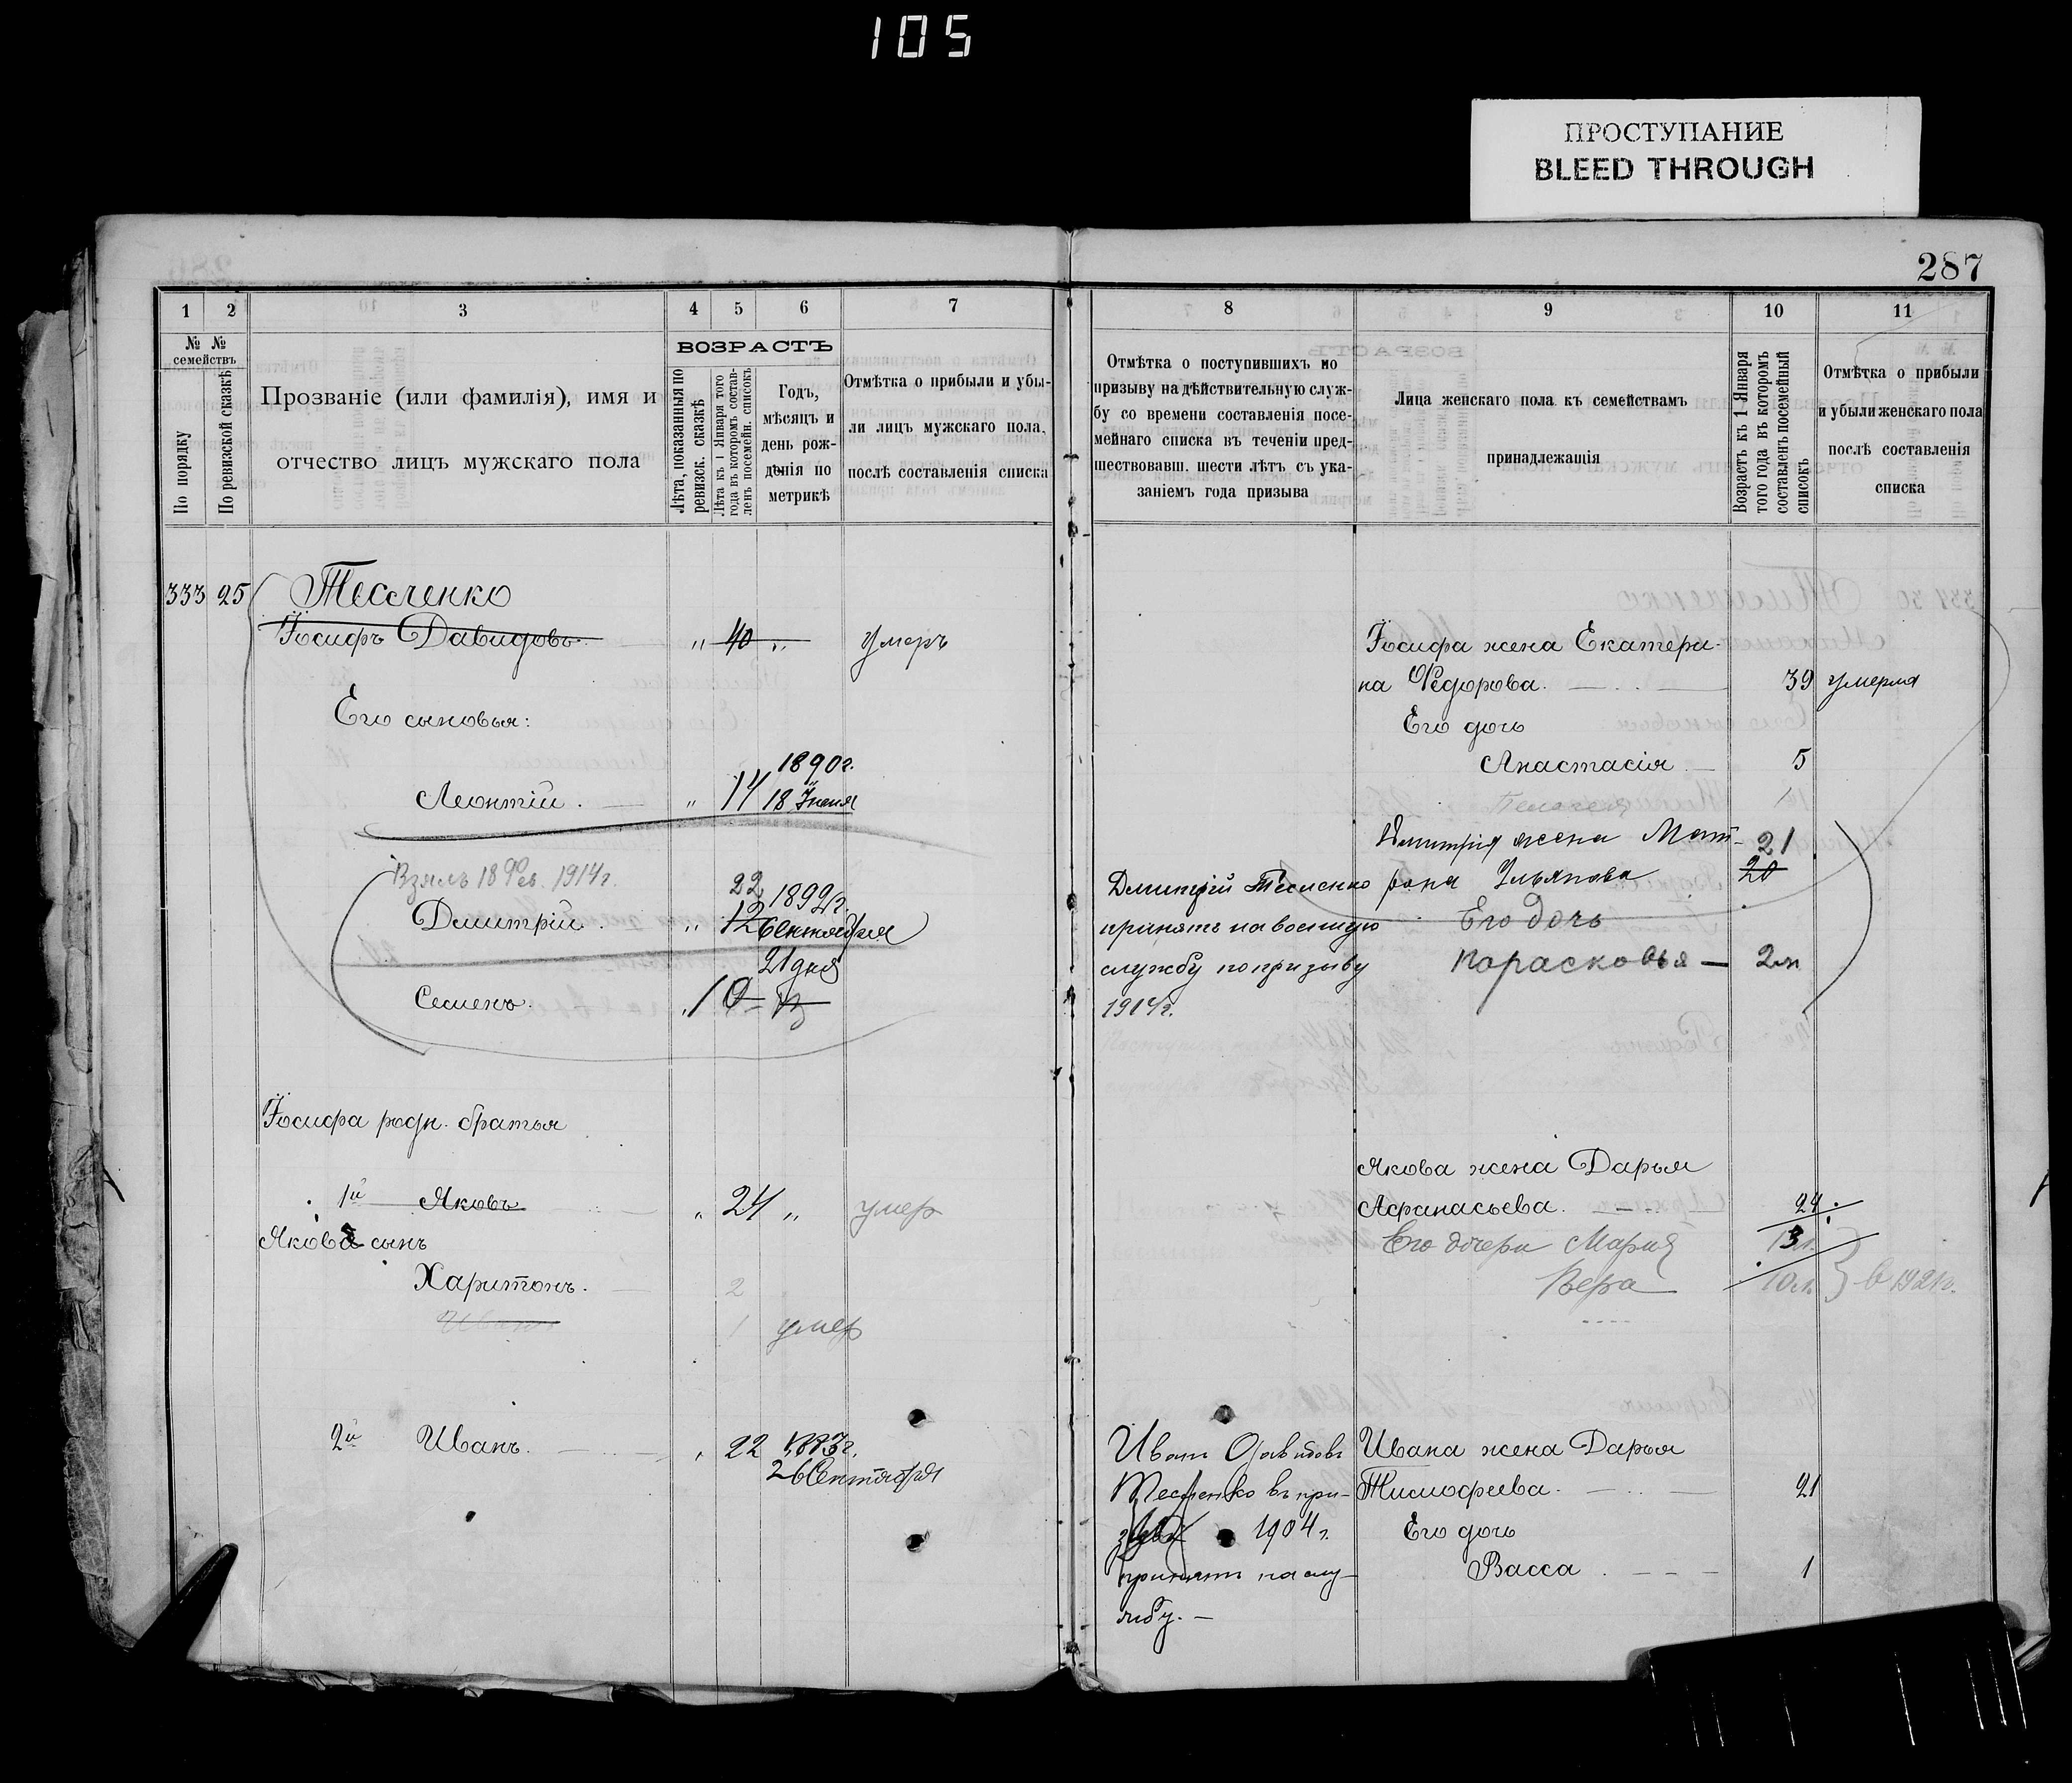 105
ПРОСТУПАНИЕ
BLEED THROUGH
287
1 2 3 4 5 6 7
№ № семействъ
По порядку
По ревизской сказкѣ
Прозваніе (или фамилія), имя и
отчество лицъ мужскаго пола
ВОЗРАСТЪ
Лѣта, показанныя по
ревизск. сказкѣ
Лѣта къ 1 Января того
года въ которомъ состав-
ленъ посемейн. списокъ
Годъ,
мѣсяцъ и
день рож-
денія по
метрикѣ
Отмѣтка о прибыли и убы-
ли лицъ мужскаго пола,
послѣ составленія списка
333 25 Тесленко
Іосифъ Давидовъ. " 40 " умеръ
Его сыновья:
1890г.
Леонтій. " 14 18 Іюня
Взятъ 18 Фев. 1914г.
22 1892г.
Дмитрій. " 12 Сентября
21 дня
Семенъ. " 10
Іосифа родн. братья
1й Яковъ " 24 " умер
Якова сынъ
Харитонъ. 2
Иванъ 1 умер
2й Иванъ. " 22 1883г.
26 Сентября
8 9 10 11
Отмѣтка о поступившихъ по
призыву на дѣйствительную служ-
бу со времени составленія посе-
мейнаго списка въ теченіи пред-
шествовавш. шести лѣтъ съ ука-
заніемъ года призыва
Лица женскаго пола къ семействамъ
принадлежащія
Возрастъ къ 1 Января
того года въ которомъ
составленъ посемейный
списокъ
Отмѣтка о прибыли
и убыли женскаго пола
послѣ составленія
списка
Іосифа жена Екатери-
на Федорова. 39 умерла
Его дочь
Анастасія 5
Пелагея
Дмитрія жена Мат- 21
рона Ульянова 20
Его дочь
Парасковья — 2м
Дмитрій Тесленко
принятъ на военную
службу по призыву
1914г.
Якова жена Дарья
Афанасьева. 24
Его дочери Марія 13л.
Вера 10л. } в 1921г.
Иванъ Давидовъ
Тесленко въ при-
зывъ 1904 г.
принятъ на слу-
жбу. —
Ивана жена Дарья
Тимофеева. 21
Его дочь
Васса 1